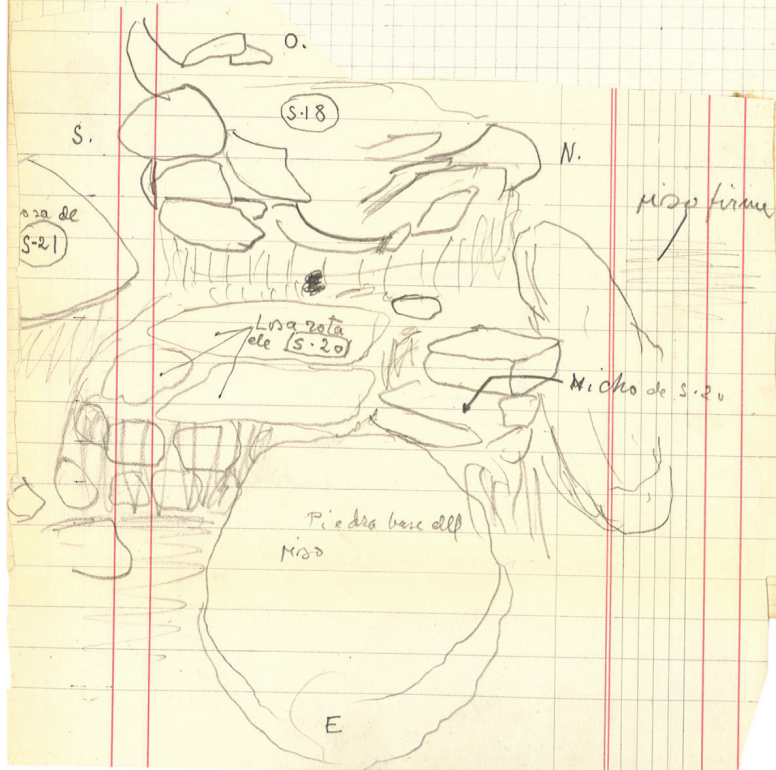 O.
S-18
S.
N.
piso firme
losa de
S-21
Losa rota
de S-20
Nicho de S-20
Piedra base del
piso
E